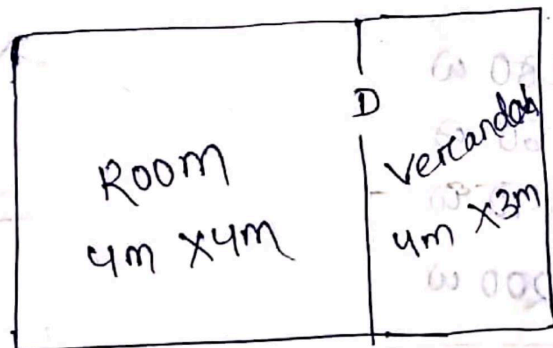 ROOM
4m X4m
D
Verandah
4m X3m